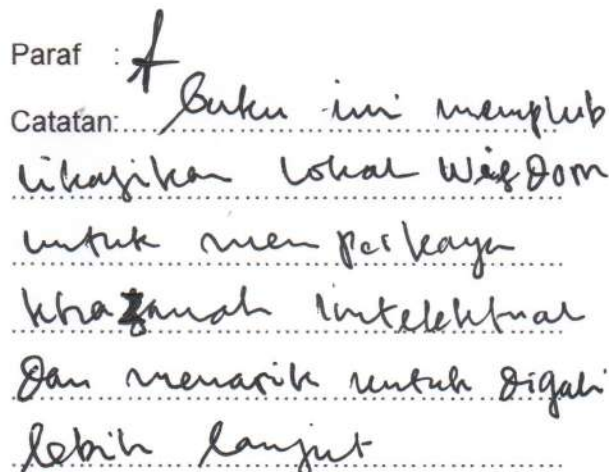 Paraf :
Catatan: buku ini mempub
likasikan lokal Wisdom
untuk memperkaya
khazanah intelektual
dan menarik untuk digali
lebih lanjut